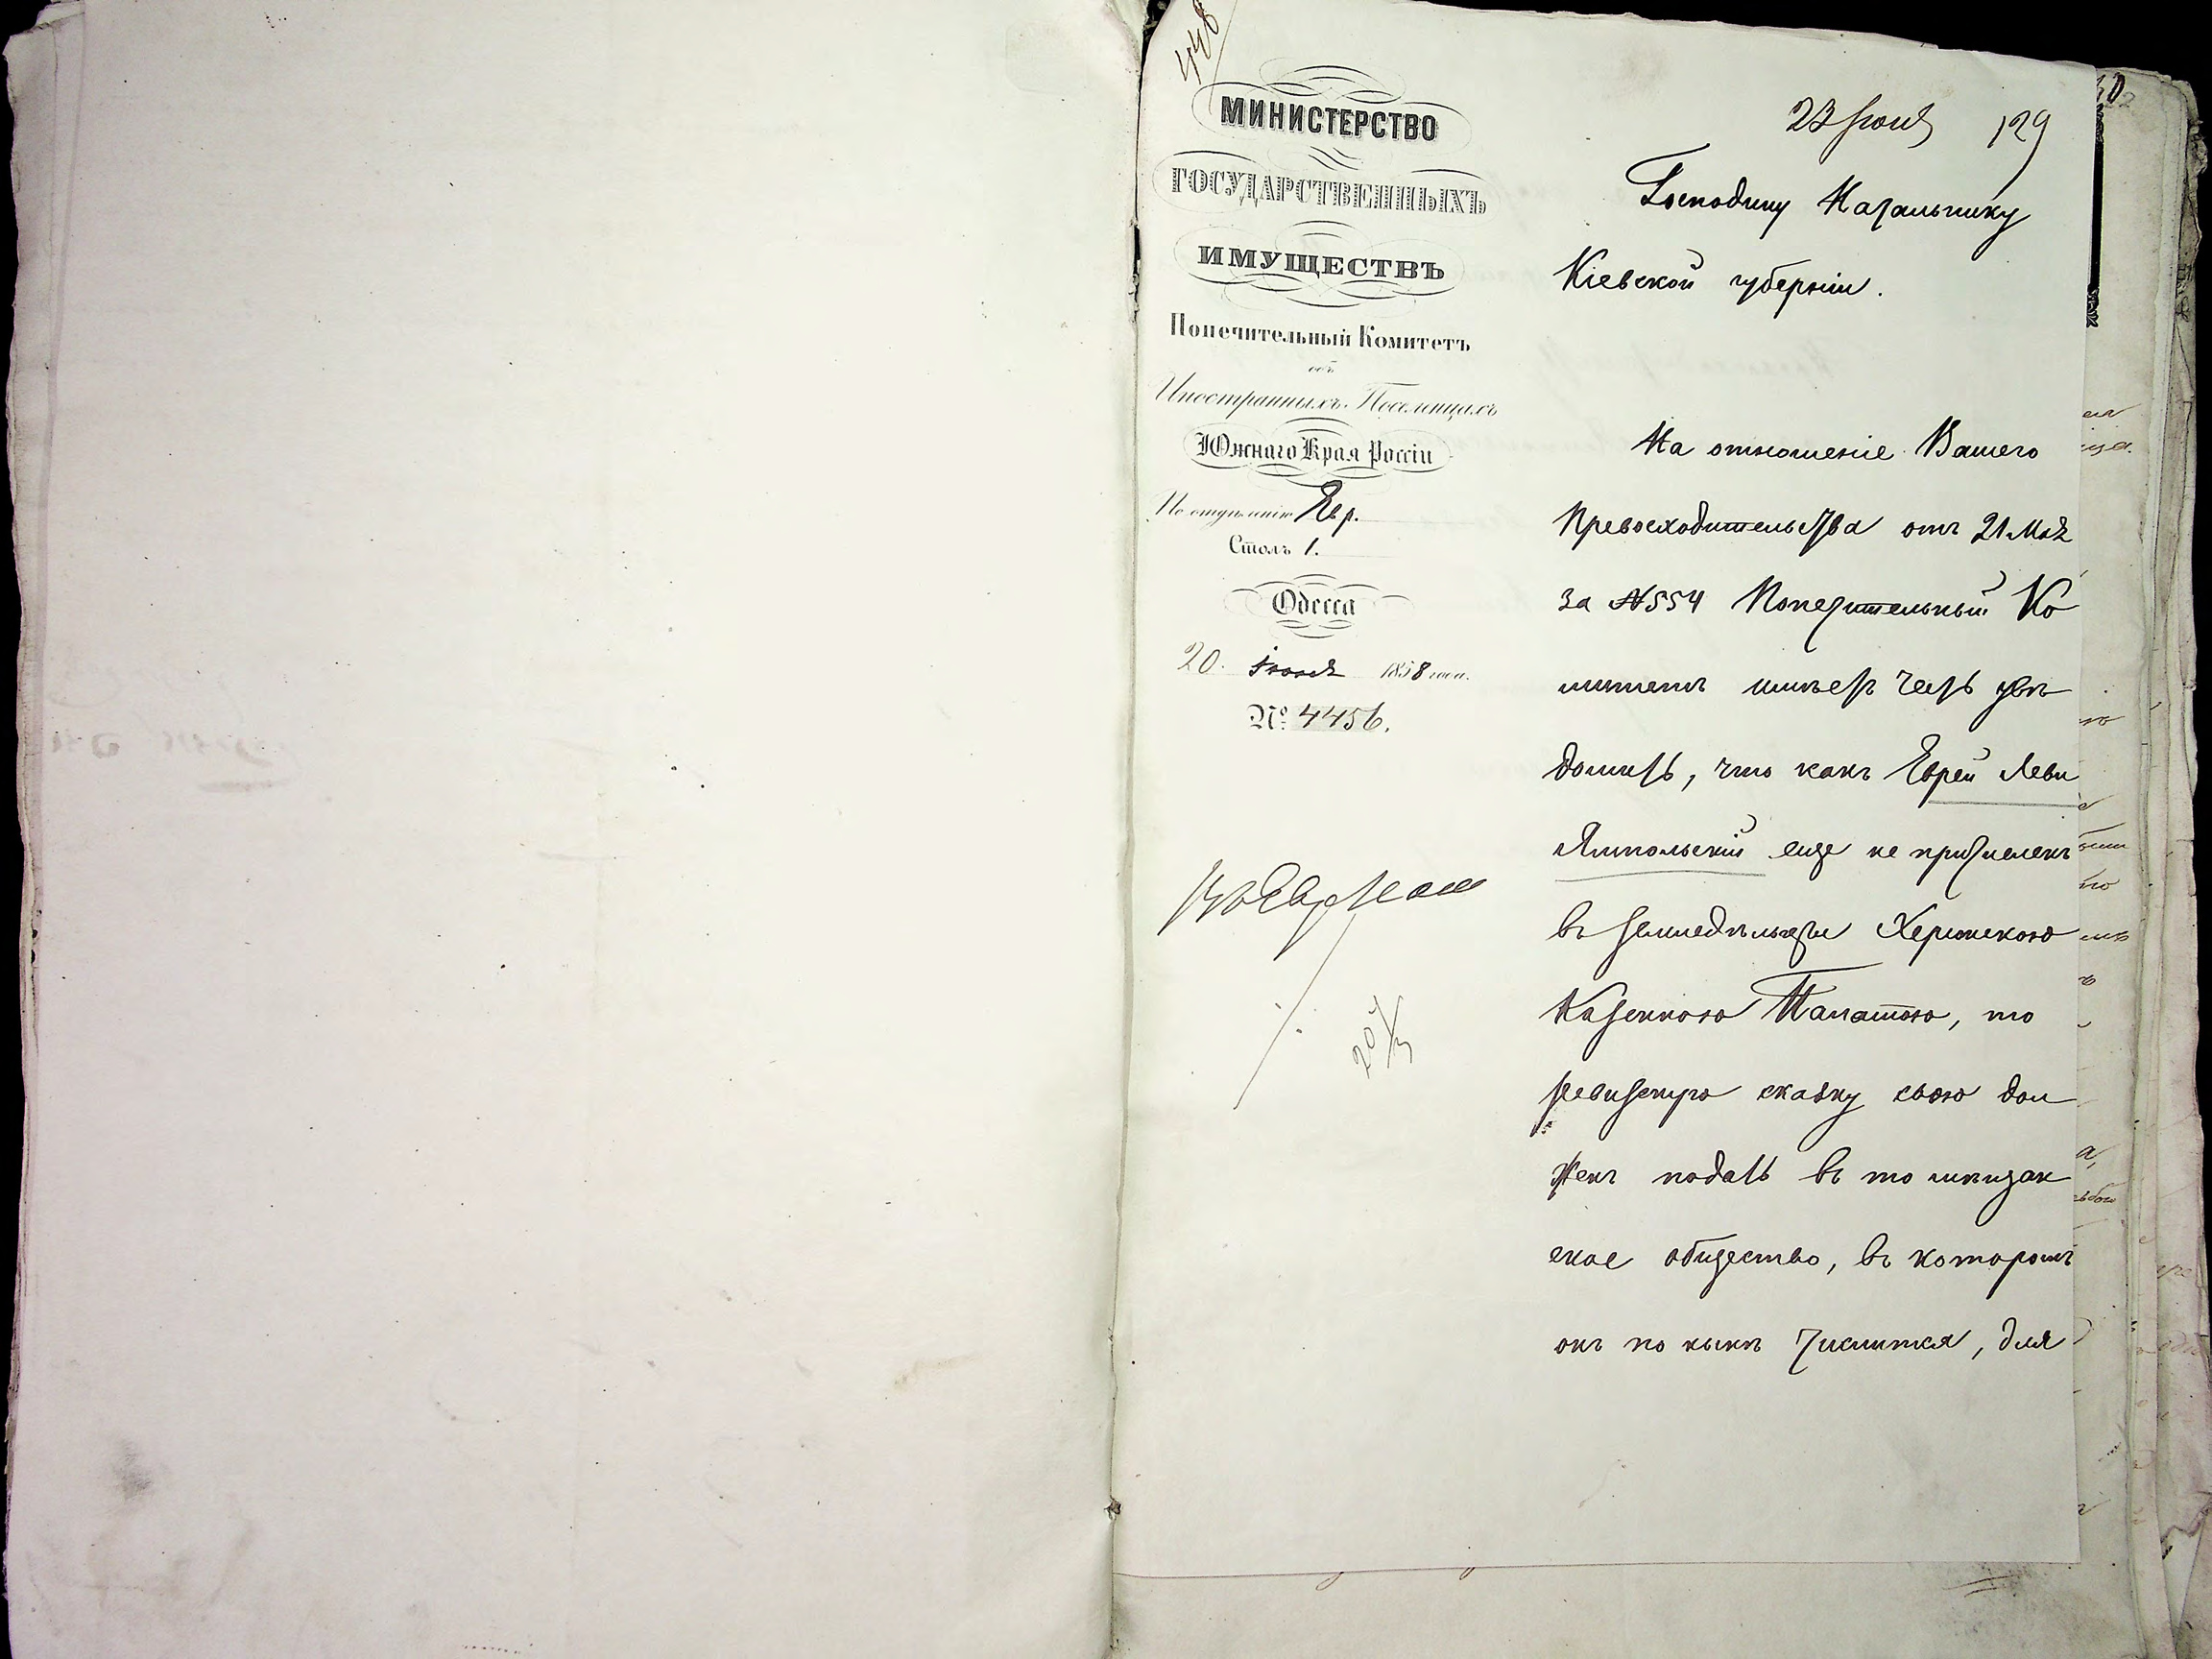 448
МИНИСТЕРСТВО
ГОСУДАРСТВЕННЫХЪ
ИМУЩЕСТВЪ
Попечительный Комитетъ
объ
Иностранныхъ Поселенцахъ
Южнаго Края Россіи
По отдѣленію Евр.
Столъ 1.
Одесса
20. Іюня 1858 года.
№ 4456.
23 Іюня 129
Господину Начальнику
Кіевской губерніи.
На отношеніе Вашего
Превосходительства отъ 21 Мая
за №554 Попечительный Ко
митетъ имѣетъ честь увѣ
домить, что какъ Еврей Леви
Ямпольскій еще не причисленъ
въ земледѣльцы Херсонскою
Казенною Палатою, то
ревизскую сказку свою дол
женъ подать въ то мѣщан
ское общество, въ которомъ
онъ по нынѣ числится, для